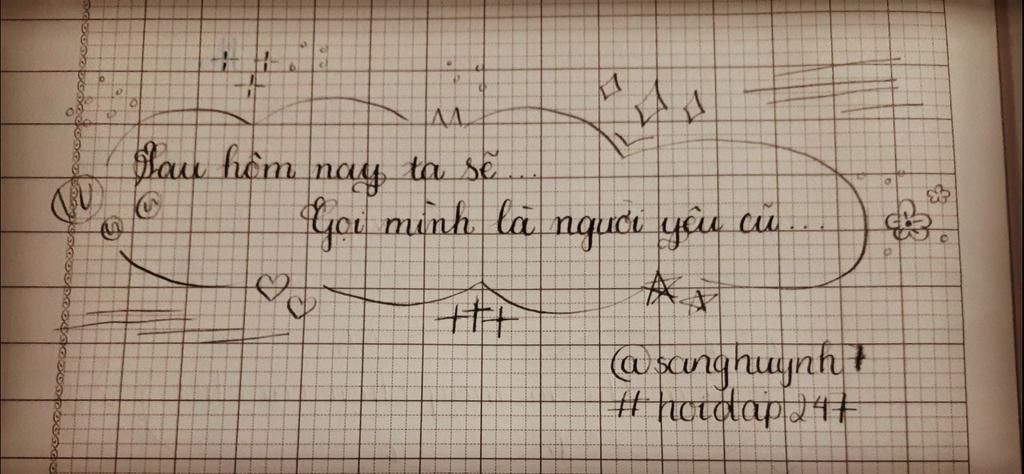 Sau hôm nay ta sẽ...
Gọi mình là người yêu cũ...
@sanghuynh1
#hoidap247